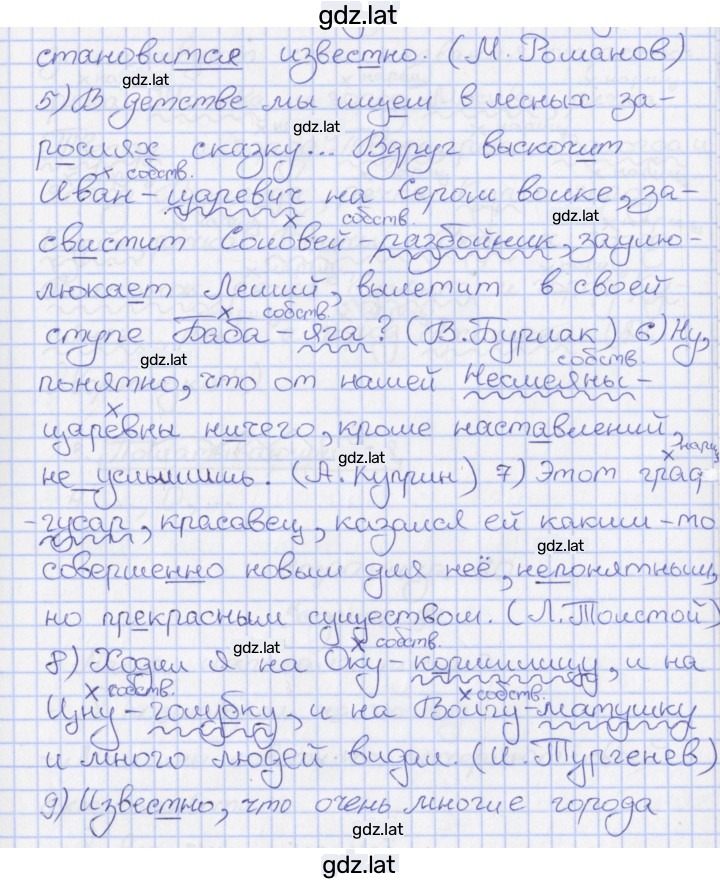 gdz.lat
становится известно. (М. Романов)
gdz.lat
5) В детстве мы ищем в лесных за-
gdz.lat
рослях сказку... Вдруг выскочит
х собств.
Иван-царевич на Сером волке, за-
х собств. gdz.lat
свистит Соловей-разбойник, заулю-
люкает Леший, вылетит в своей
х собств.
ступе Баба-яга? (В. Бурлак) 6) Ну,
gdz.lat собств.
понятно, что от нашей Несмеяны-
х
царевны ничего, кроме наставлений,
gdz.lat х нариц.
не услышишь. (А. Куприн) 7) Этот граф
-гусар, красавец, казался ей каким-то
gdz.lat
совершенно новым для неё, непонятным,
но прекрасным существом. (Л. Толстой)
gdz.lat х собств.
8) Ходил я на Оку-кормилицу, и на
х собств. х собств.
Цну-голубку, и на Волгу-матушку
и много людей видал. (И. Тургенев)
9) Известно, что очень многие города
gdz.lat
gdz.lat